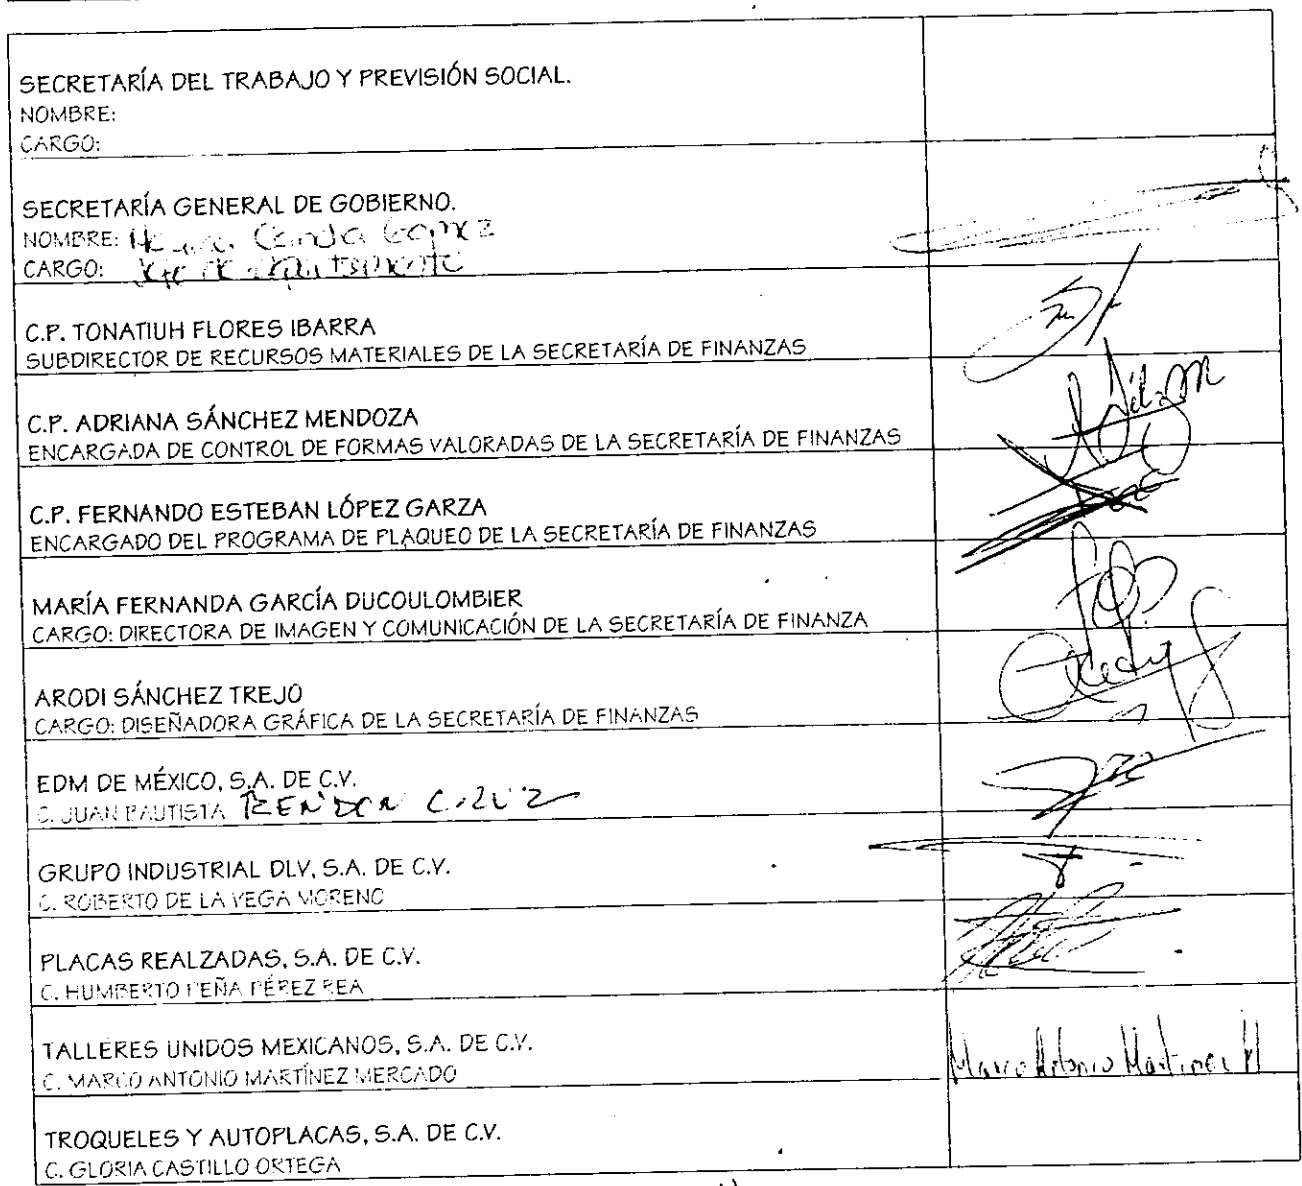 SECRETARÍA DEL TRABAJO Y PREVISIÓN SOCIAL.
NOMBRE:
CARGO:
SECRETARÍA GENERAL DE GOBIERNO.
NOMBRE:
CARGO:
C.P. TONATIUH FLORES IBARRA
SUBDIRECTOR DE RECURSOS MATERIALES DE LA SECRETARÍA DE FINANZAS
C.P. ADRIANA SÁNCHEZ MENDOZA
ENCARGADA DE CONTROL DE FORMAS VALORADAS DE LA SECRETARÍA DE FINANZAS
C.P. FERNANDO ESTEBAN LÓPEZ GARZA
ENCARGADO DEL PROGRAMA DE PLAQUEO DE LA SECRETARÍA DE FINANZAS
MARÍA FERNANDA GARCÍA DUCOULOMBIER
CARGO: DIRECTORA DE IMAGEN Y COMUNICACIÓN DE LA SECRETARÍA DE FINANZA
ARODI SÁNCHEZ TREJO
CARGO: DISEÑADORA GRÁFICA DE LA SECRETARÍA DE FINANZAS
EDM DE MÉXICO, S.A. DE C.V.
C. JUAN BAUTISTA RENDON CRUZ
GRUPO INDUSTRIAL DLV, S.A. DE C.V.
C. ROBERTO DE LA VEGA MORENO
PLACAS REALZADAS, S.A. DE C.V.
C. HUMBERTO PEÑA PÉREZ REA
TALLERES UNIDOS MEXICANOS, S.A. DE C.V.
C. MARCO ANTONIO MARTÍNEZ MERCADO
Marco Antonio Martinez M
TROQUELES Y AUTOPLACAS, S.A. DE C.V.
C. GLORIA CASTILLO ORTEGA